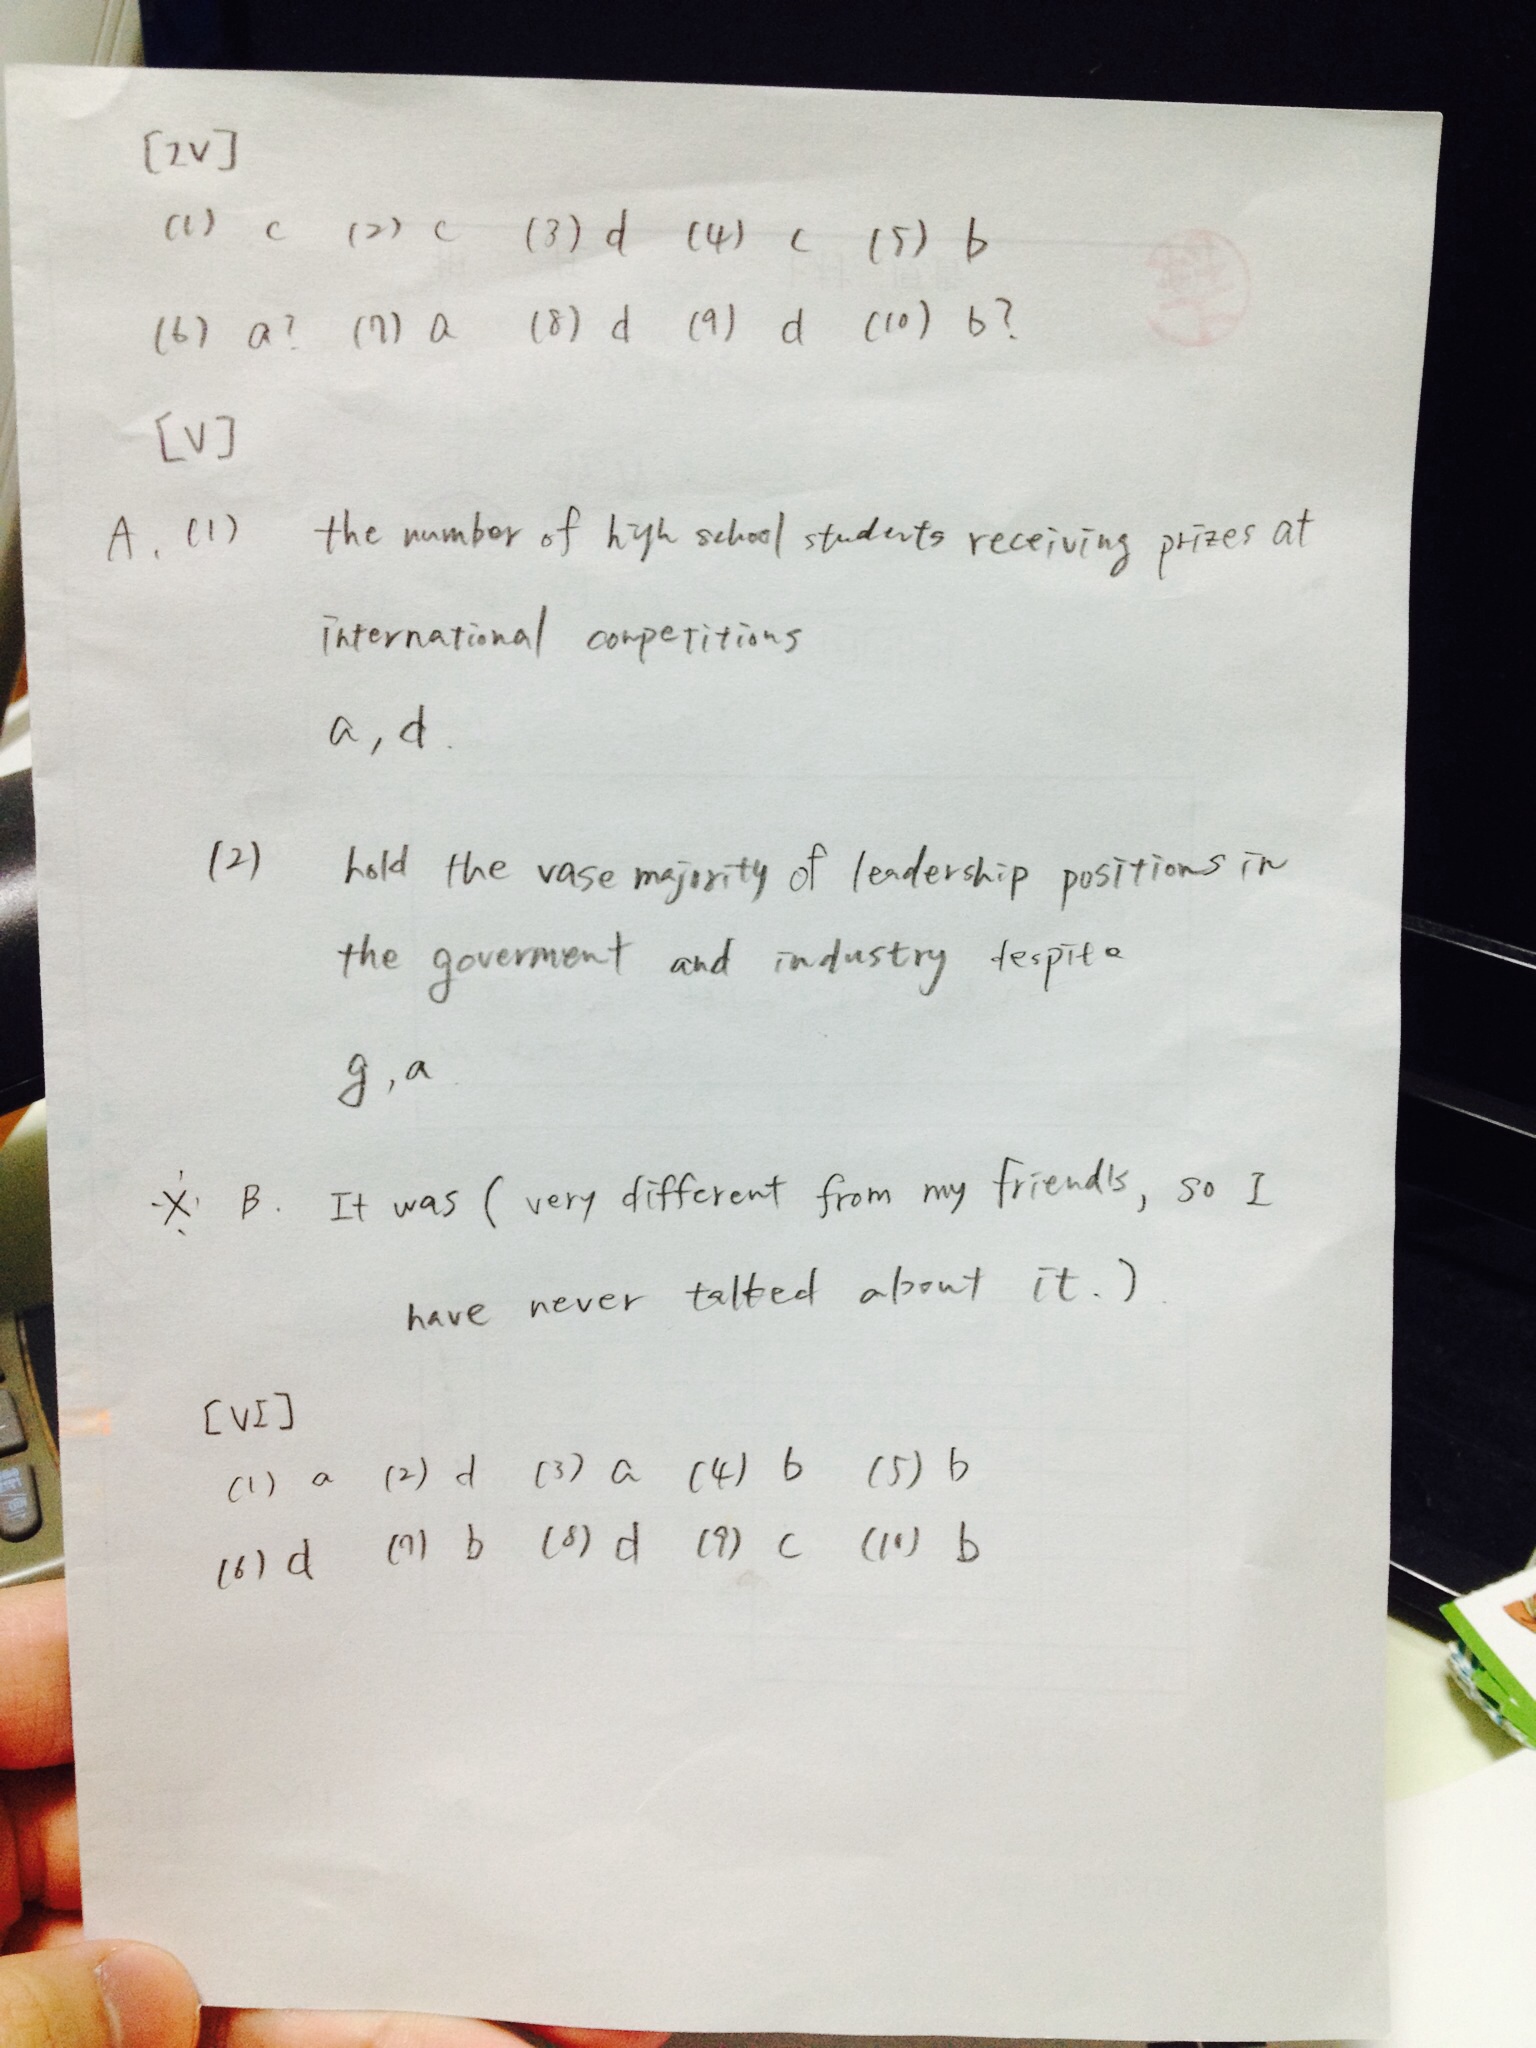 [IV]
(1) c (2) c (3) d (4) c (5) b
(6) a? (7) a (8) d (9) d (10) b?
[V]
A. (1) the number of high school students receiving prizes at
international competitions
a, d.
(2) hold the vase majority of leadership positions in
the goverment and industry despite
g, a
※ B. It was ( very different from my friend's, so I
have never talked about it. )
[VI]
(1) a (2) d (3) a (4) b (5) b
(6) d (7) b (8) d (9) c (10) b